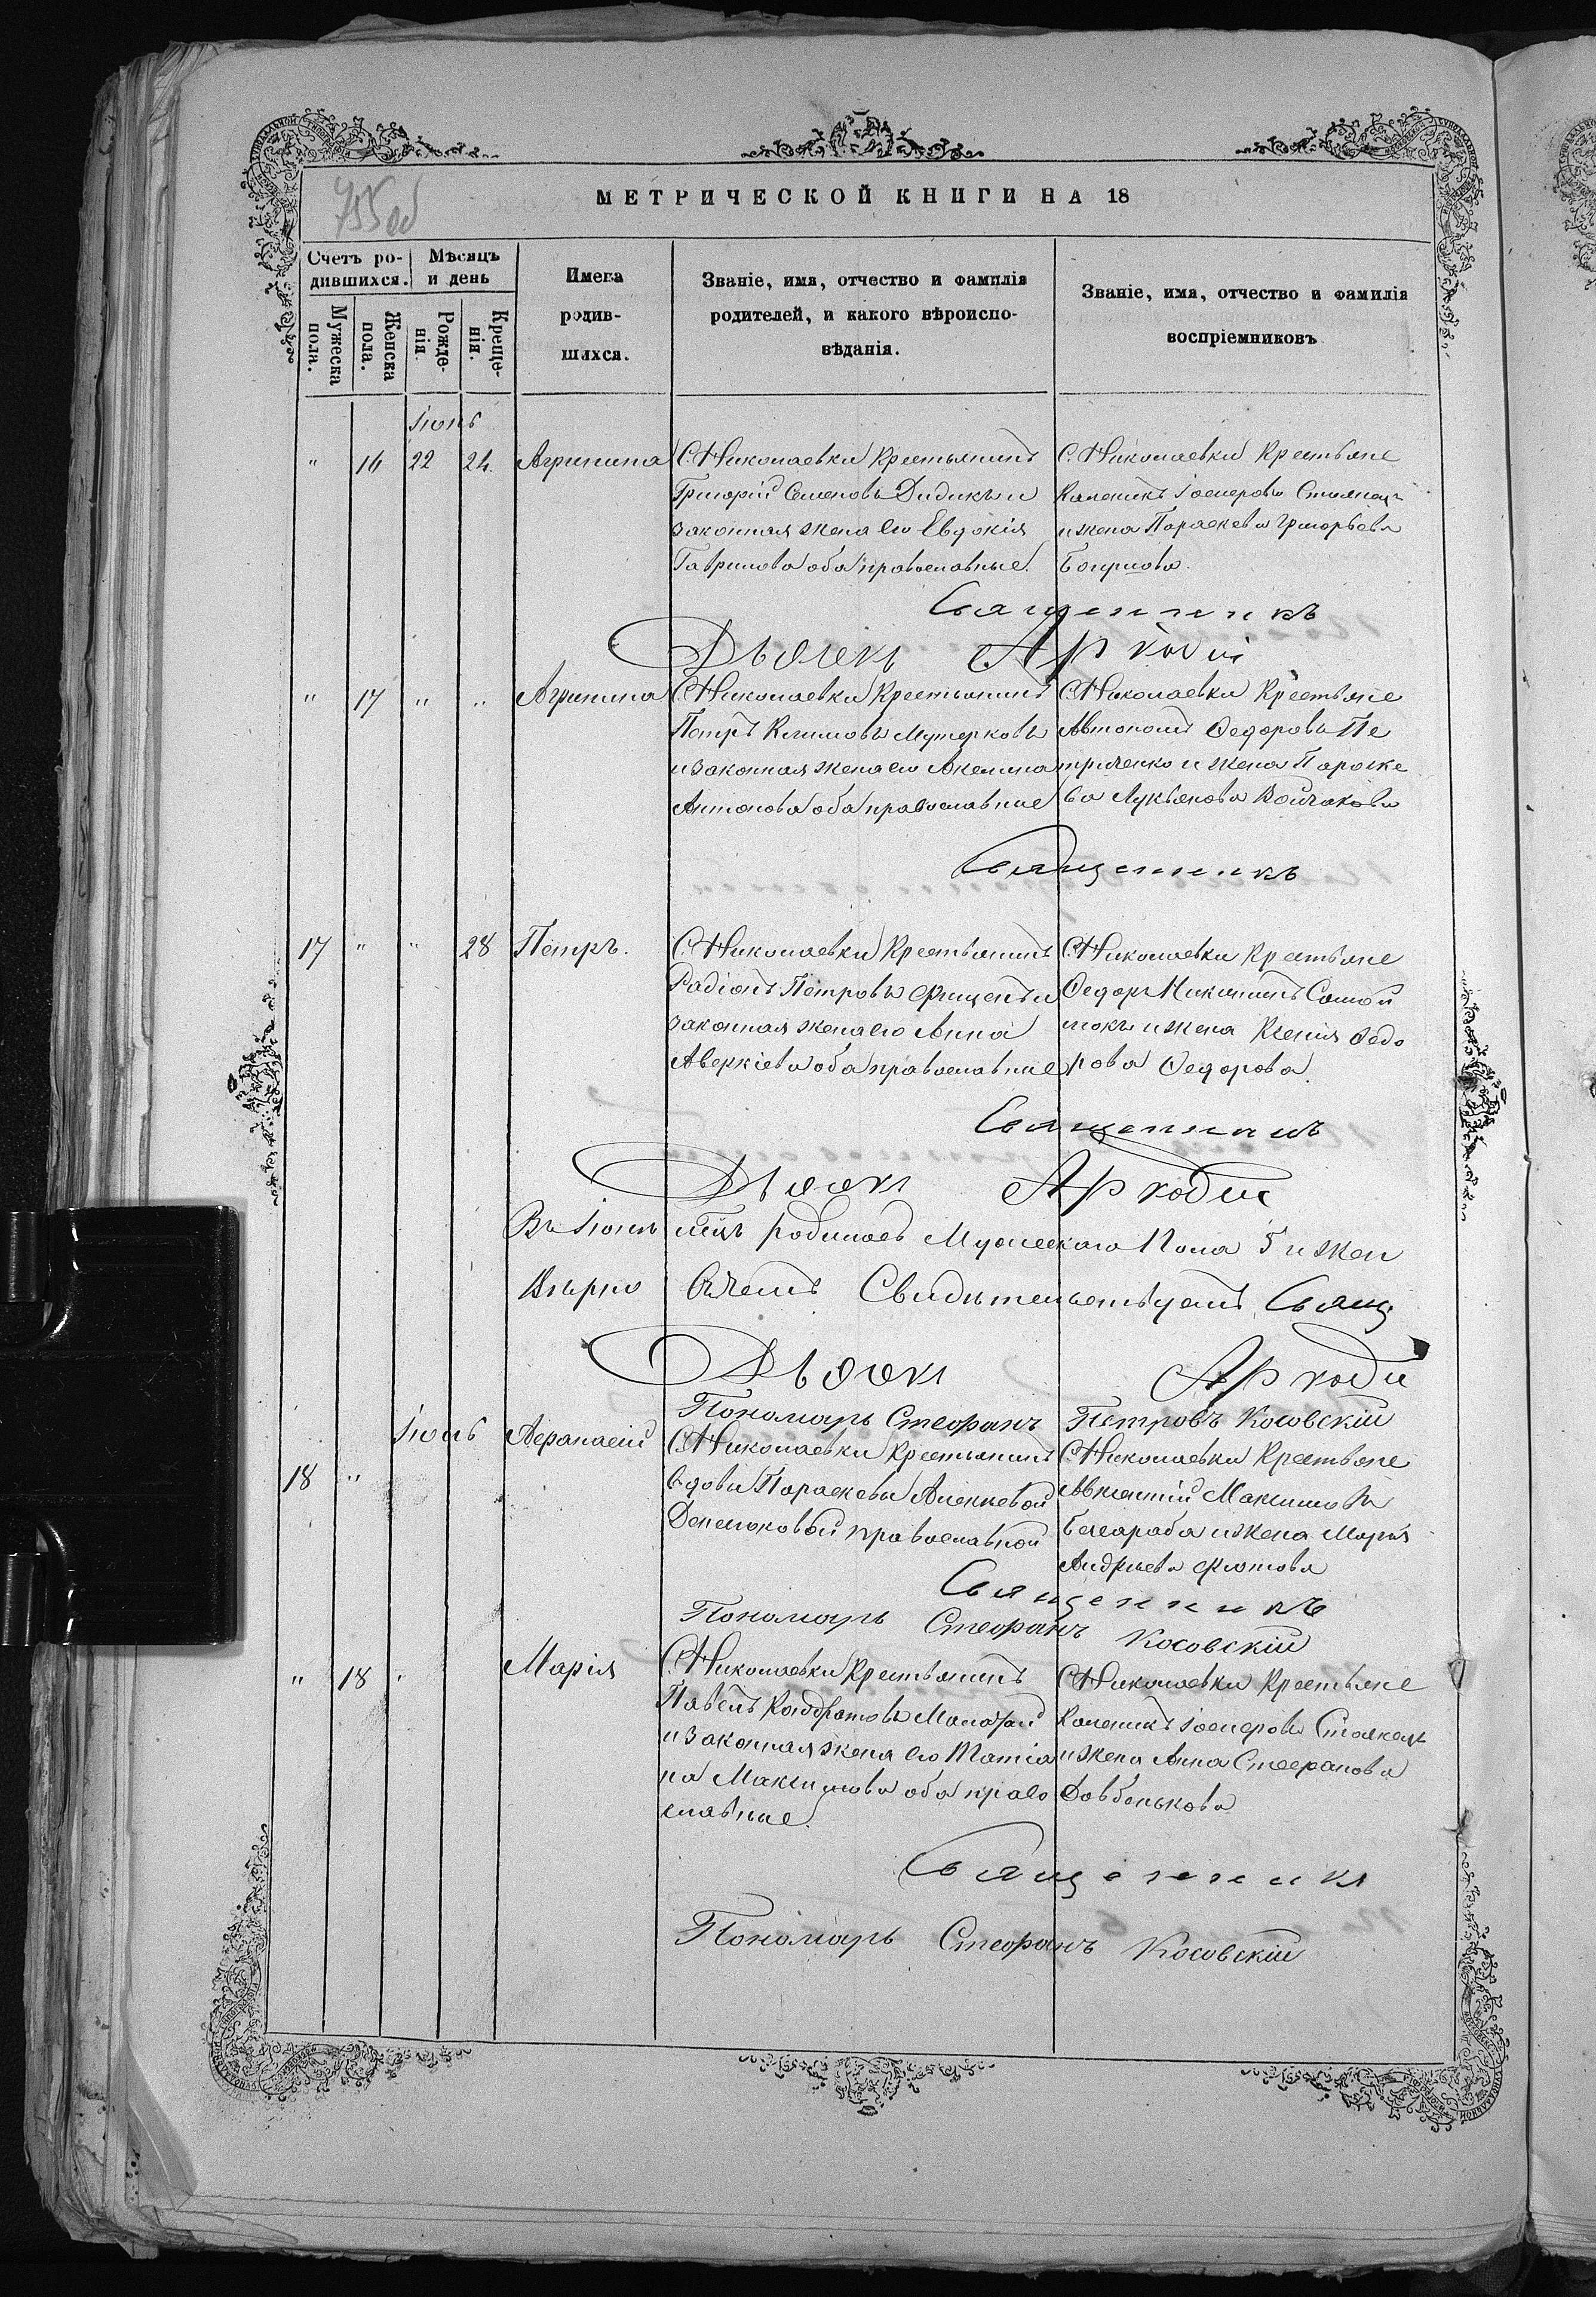 755 об
МЕТРИЧЕСКОЙ КНИГИ НА 18
Счетъ ро-
дившихся.
Мѣсяцъ
и день
Мужеска
пола.
Женска
пола.
Рожде-
нія.
Креще-
нія.
Имена
родив-
шихся.
Званіе, имя, отчество и фамилія
родителей, и какого вѣроиспо-
вѣданія.
Званіе, имя, отчество и фамилія
воспріемниковъ
Іюнь
" 16 22 24. Агрипина
С. Николаевки Крестьянинъ
Григорій Семеновъ Дидикъ и
законная жена его Евдокія
Гаврилова оба православные.
С. Николаевки Крестьяне
Каленикъ Іосифовъ
и жена Параскева Григорьева
Священникъ
Дьячекъ Аркадій
" 17 " " Агрипина
С. Николаевки Крестьянинъ
Петръ Климовъ
и законная жена его Акелина
Антонова оба православные
С. Николаевки Крестьяне
Автономъ Федоровъ Пе
триченко и жена Параске
ва Лукьянова
Священникъ
17 " " 28 Петръ.
С. Николаевки Крестьянинъ
Радіонъ Петровъ и
законная жена его Анна
Аверкіева оба православные
С. Николаевки Крестьяне
Федоръ Никитинъ Самой
ликъ и жена Ксенія Федо
рова Федорова.
Священникъ
Дьячекъ Аркадій
Въ Іюнѣ мцѣ родилось Мужескаго Пола 5 и жен
Вѣрно въ чемъ Свидѣтельствуетъ Свящ
Дьячекъ Аркади
Пономарь Стефанъ Петровъ Косовскій
Іюль
18 " Афанасій
С. Николаевки Крестьянинъ
вдовы Параскевы Алексѣевой
православной
С. Николаевки Крестьяне
Максимовъ
Бесараба и жена Марія
Андреева
Священникъ
Пономарь Стефанъ Косовскій
" 18 " Марія
С. Николаевки Крестьянинъ
Павелъ Кондратовъ
и законная жена его Татіа
на Максимова оба право
славные.
С. Николаевки Крестьяне
Каленикъ Іосифовъ
и жена Анна Стефанова
Довбенькова
Священникъ
Пономарь Стефанъ Косовскій